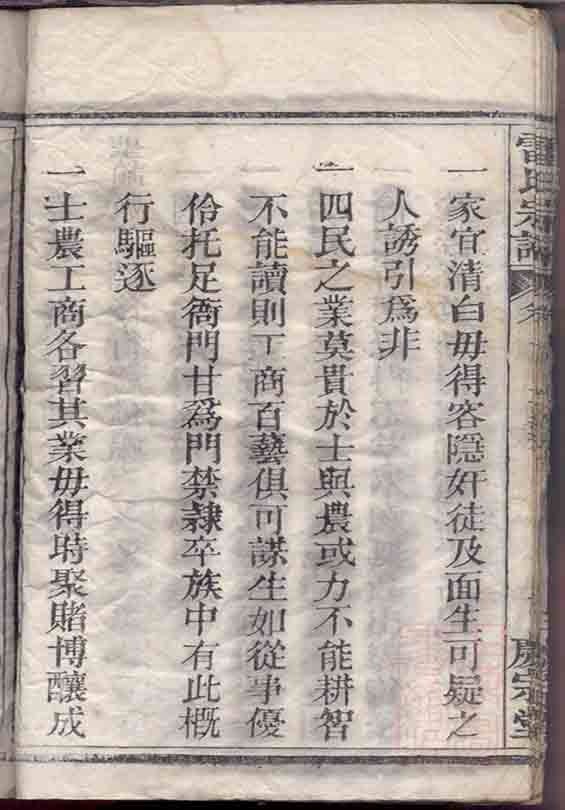 雷氏宗譜
慶宗堂
一家宜清白毋得容隱奸徒及面生可疑之
人誘引爲非
一四民之業莫貴於士與農或力不能耕智
不能讀則工商百藝俱可謀生如從事優
伶托足衙門甘爲門禁隷卒族中有此概
行驅逐
一士農工商各習其業毋得時聚賭博釀成